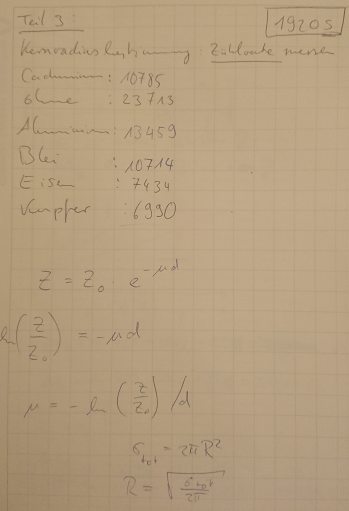 Teil 3:
1920 s
Kernradiusbestimmung: Zählrate messen
Cadmium: 10785
ohne : 23713
Aluminium: 13459
Blei : 10714
Eisen : 7434
Kupfer : 6990
Z = Z₀ · e^(-μd)
ln(Z/Z₀) = -μd
μ = - ln(Z/Z₀)/d
σ_tot = 2πR²
R = √(σ_tot/2π)